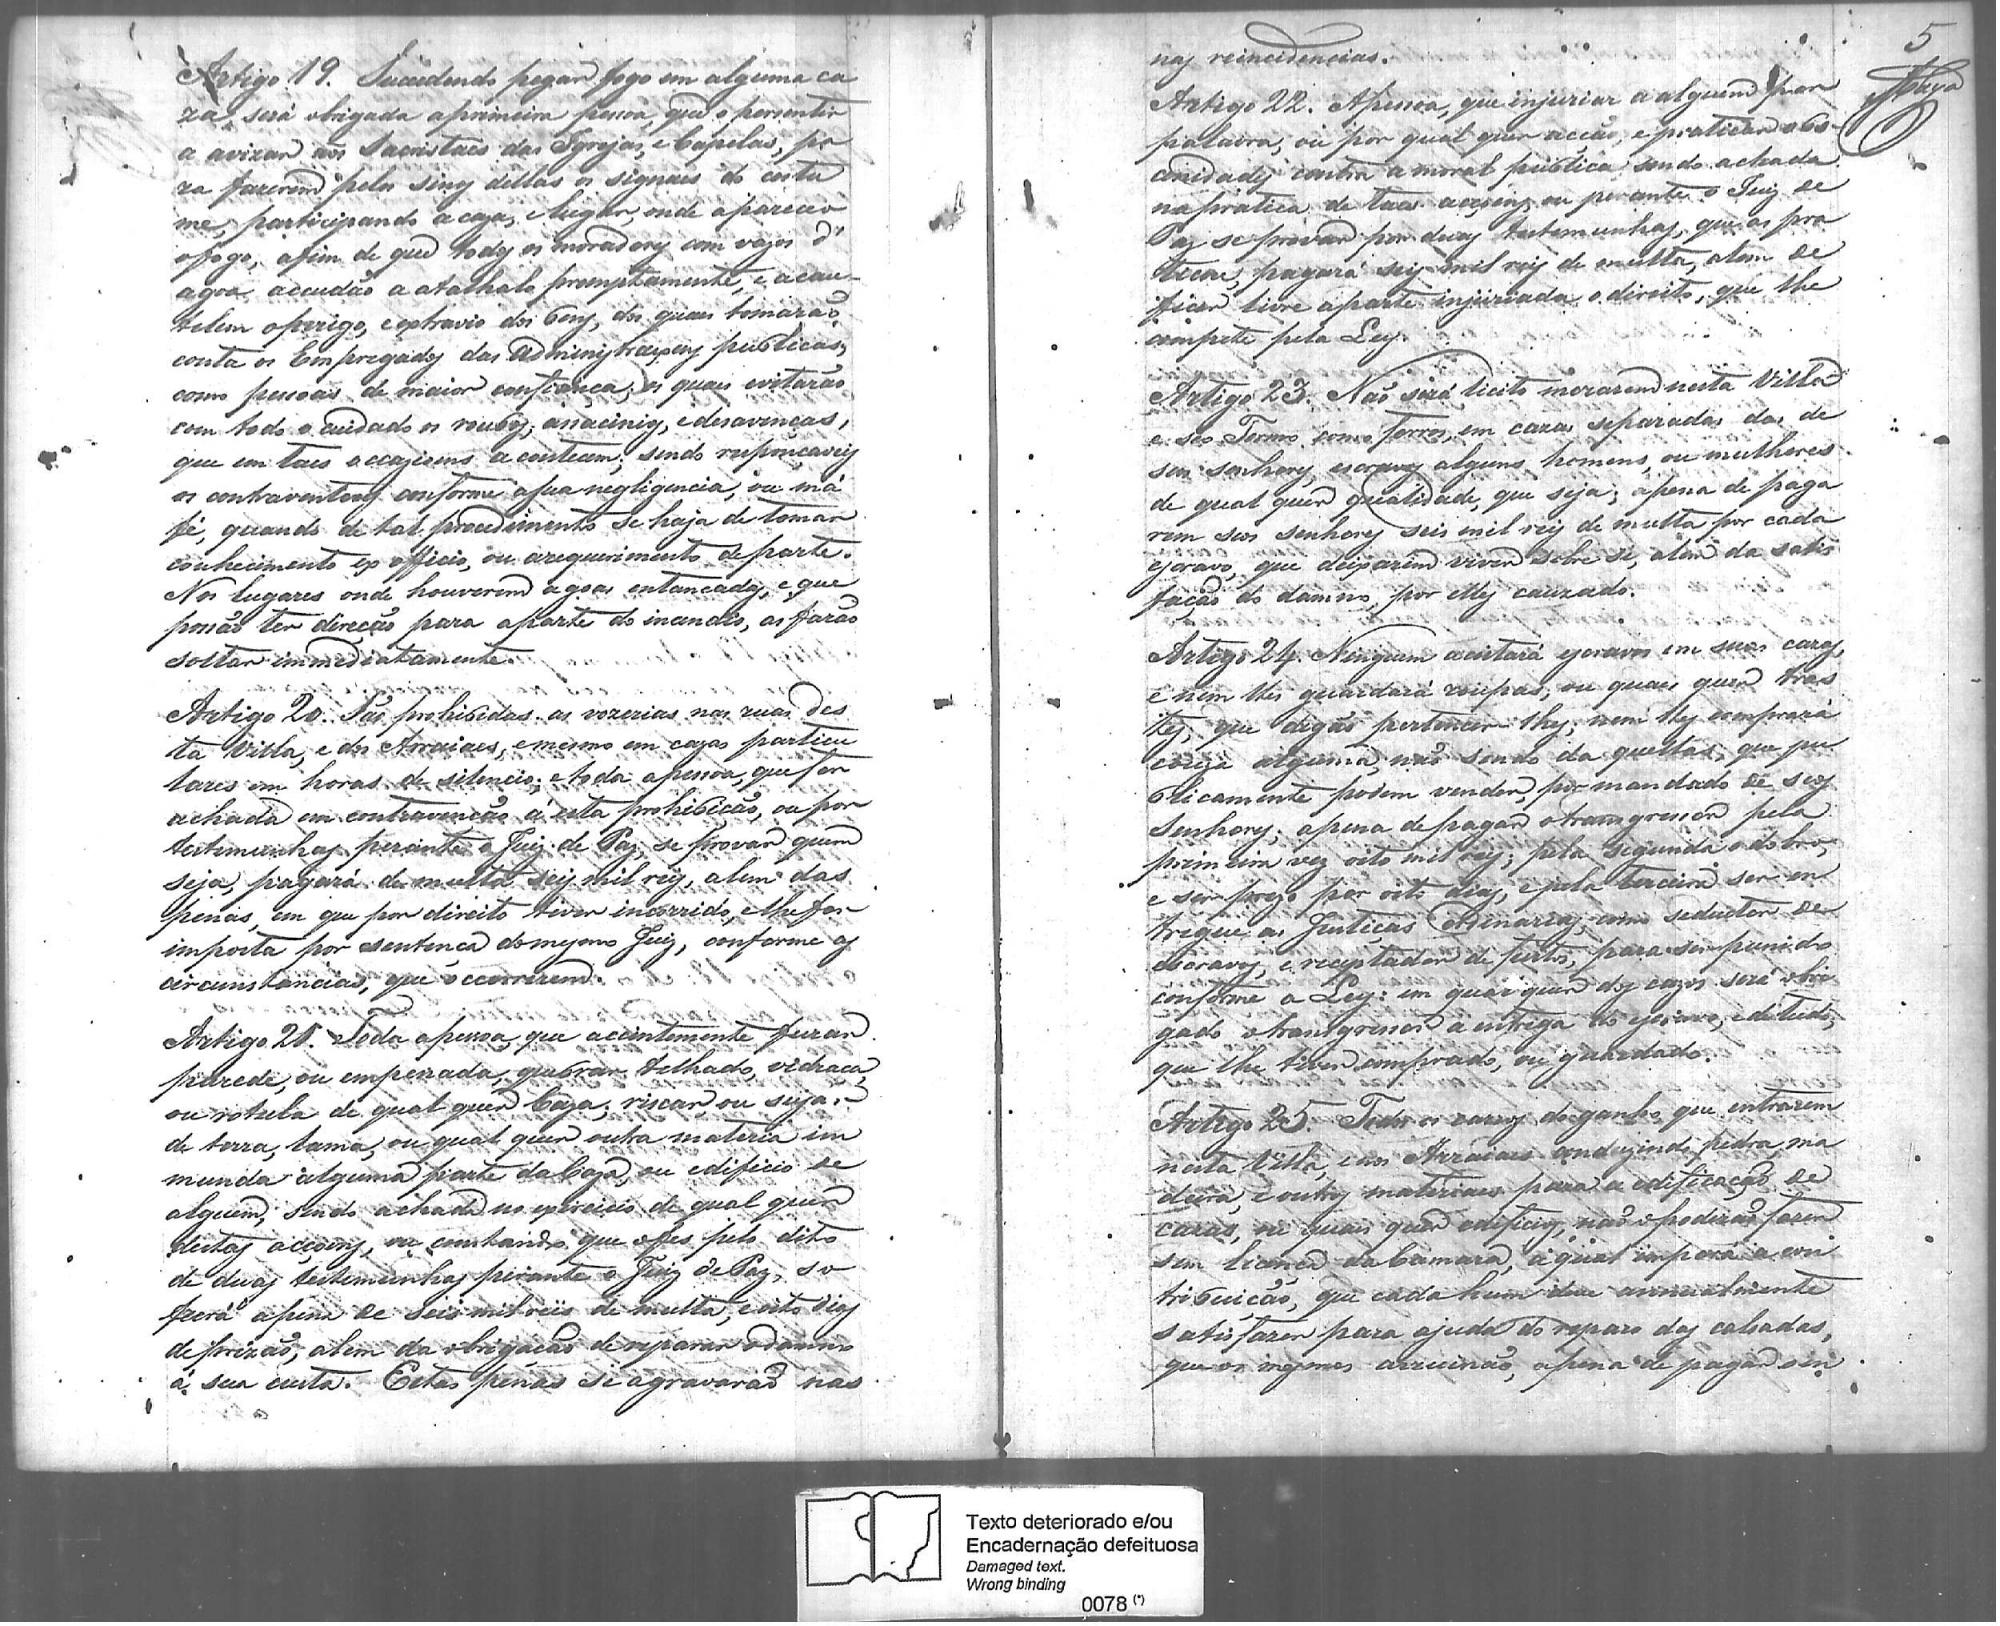 Artigo 19. Succedendo pegar fogo em alguma ca
za, será obrigada aprimeira pessoa, que o persentir
a avizar aos Sacristaes das Igrejas, e Capelas, pa
ra fazerem pelos sinos dellas os signaes do custu
me, participando a caza, e lugar, onde apareceo
o fogo, afim de que todos os moradores com vazos d'
agoa accudão a atalhalo promptamente, e acau-
telem operigo, e extravio dos bens, dos quaes tomarão
conta os Empregados das Administraçoens publicas,
como pessoas de maior confiança, os quaes evitarão
com todo o cuidado os roubos, assacinios, e desavenças,
que em taes occazioens aconteçam; sendo responçaveis
os contraventores conforme a sua negligencia, ou má
fé, quando de tal procedimento se haja de tomar
conhecimento ex officio, ou arequerimento de parte.
Nos lugares onde houverem agoas entancadas, e que
possão ter direcção para aparte do incendio, as farão
soltar immediatamente.
Artigo 20. São prohibidas as vozerias nas ruas des
ta Villa, e dos Arraiaes, e mesmo em cazas particu
lares em horas de silencio; e toda apessoa, que for
achada em contravenção á esta prohibição, ou por
testemunhas perante o Juiz de Paz, se provar quem
seja, pagará de multa seis mil reis, alem das
penas, em que por direito tiver incorrido, e lhe for
imposta por sentença do mesmo Juiz, conforme as
circunstancias, que occorrerem.
Artigo 21. Toda apessoa, que acintemente furar
parede, ou empenada, quebrar telhado, vidraça,
ou rotula de qual quer Caza, riscar, ou sujar
de terra, lama, ou qual quer outra materia im
munda alguma parte da Caza, ou edificio de
alguem, sendo achada no exercicio de qual quer
destas acçoens, ou constando que o fes pelo dito
de duas testemunhas perante o Juiz de Paz, so
frerá apena de seis mil reis de multa, e oito dias
de prizão, alem da obrigação de reparar o damno
á sua custa. Estas penas se agravarão nas
5
nas reincidencias.
Artigo 22. Apessoa, que injuriar a alguem por
palavra, ou por qual quer acção, e praticar obs-
cenidades contra a moral publica sendo achada
na pratica de taes acçoens, ou perante o Juiz de
Paz se provar por duas testemunhas, que as pra
ticou, pagará seis mil reis de multa, alem de
ficar livre aparte injuriada o direito, que lhe
compete pela Ley.
Artigo 23. Não será licito morarem nesta Villa
e seo Termo como forros, em cazas separadas das de
seus senhores, escravos alguns, homens, ou mulheres
de qual quer qualidade, que seja; apena de paga
rem seos senhores seis mil reis de multa por cada
escravo, que deixarem viver sobre si, alem da satis
fação do damno, por elles cauzado.
Artigo 24. Ninguem acoitará escravos em suas cazas,
e nem lhes guardará roupas, ou quaes quer tras
tes, que digão pertencer lhes; nem lhes comprará
couza alguma, não sendo da quellas, que pu
blicamente podem vender, por mandado de seos
Senhores; apena de pagar o transgressor pela
primeira vez oito mil reis; pela segunda o dobro,
e ser prezo por oito dias, e pela terceira ser en
tregue as Justiças Ordinarias, como seductor de
escravos, e receptador de furtos, para ser punido
conforme a Ley: em quaes quer dos cazos será obri
gado o transgressor a entrega do escravo, e de tudo,
que lhe tiver comprado, ou guardado.
Artigo 25. Todos os carros do ganho, que entrarem
nesta Villa, e nos Arraiaes conduzindo pedra, ma
deira, e outros materiaes para a edificação de
cazas, ou quaes quer edificios, não o poderão fazer
sem licença da Camara, a qual imporá a con
tribuição, que cada hum deve annualmente
satisfazer para ajuda do reparo das calsadas,
que os mesmos arruinão, apena de pagar sem
Texto deteriorado e/ou
Encadernação defeituosa
Damaged text.
Wrong binding
0078 (*)